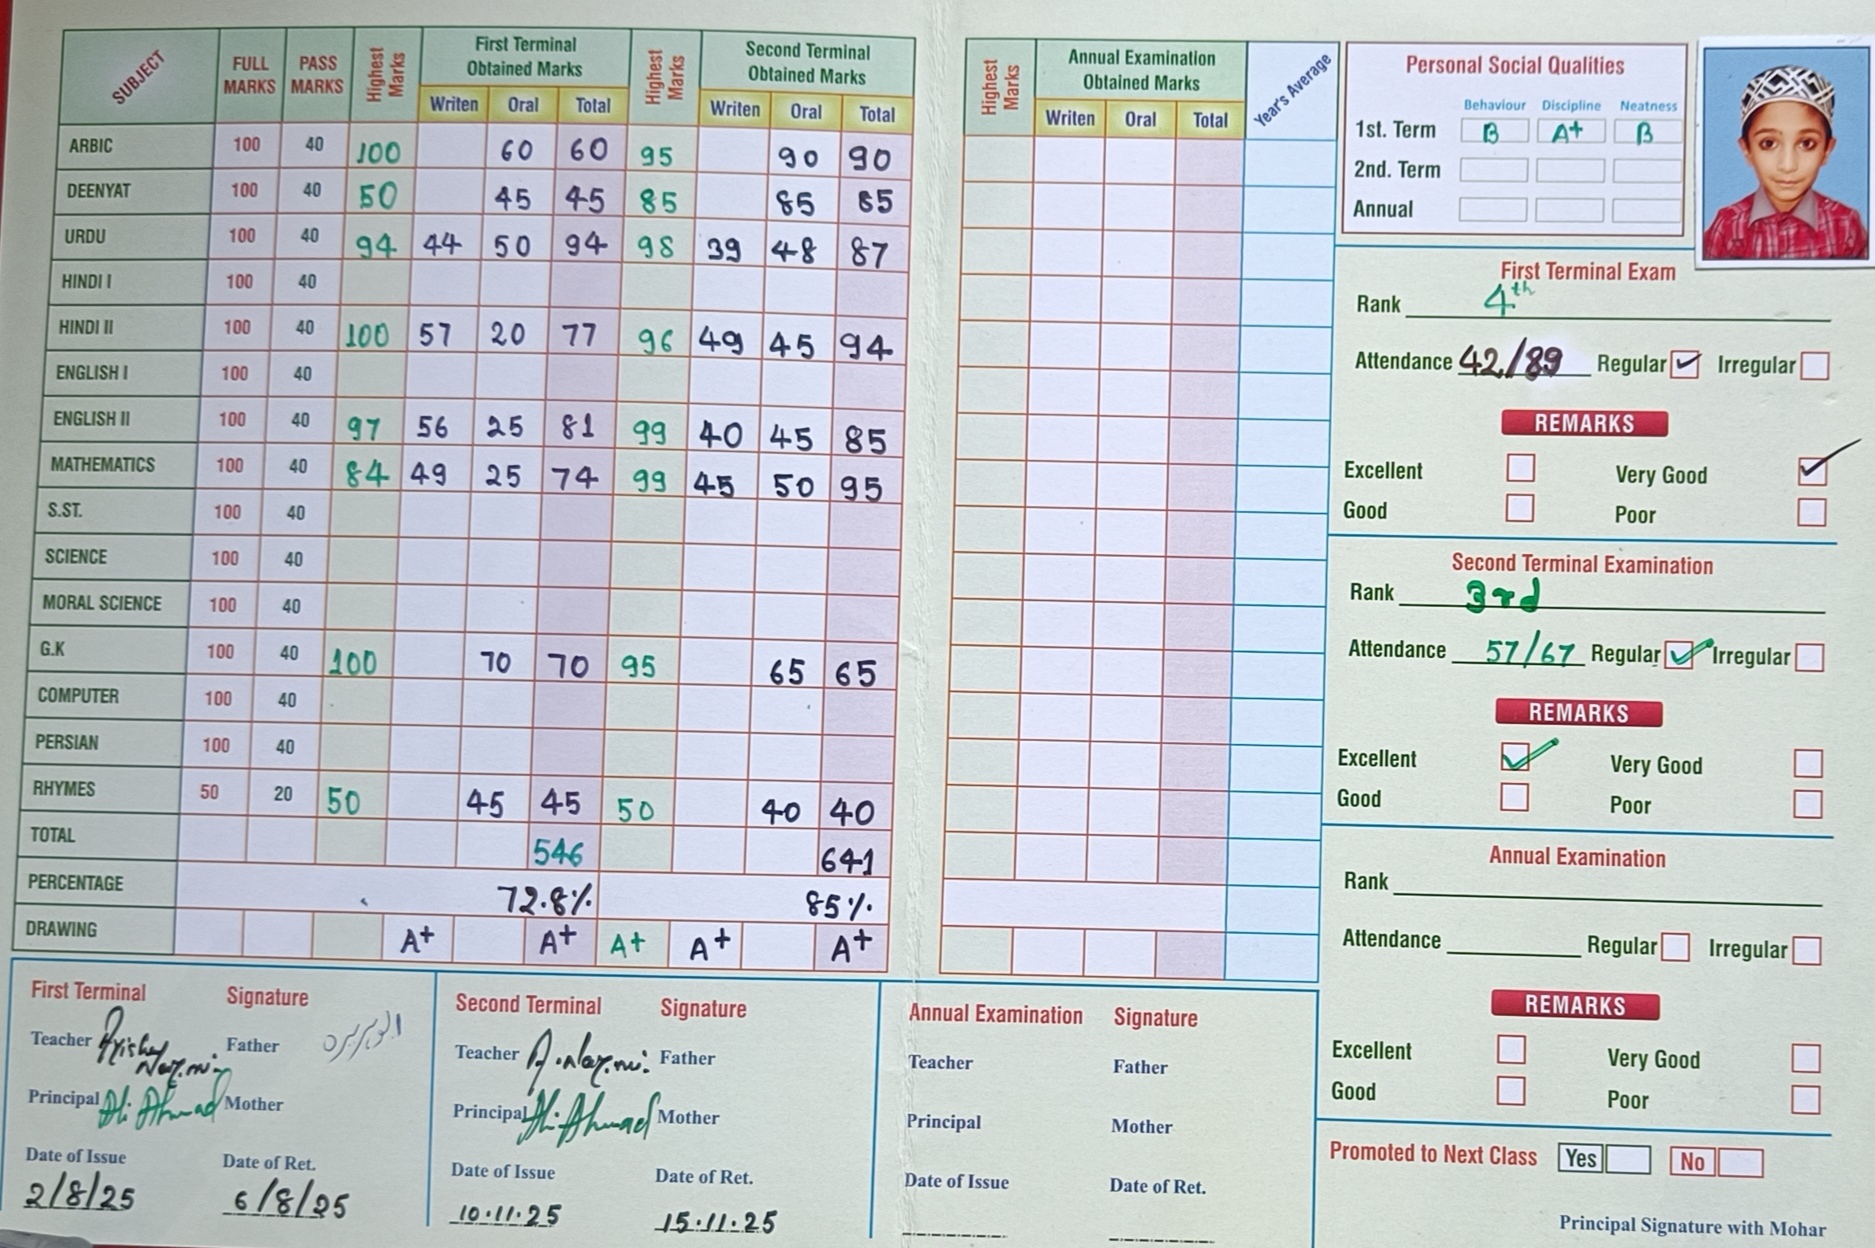 SUBJECT FULL MARKS PASS MARKS Highest Marks First Terminal Obtained Marks Highest Marks Second Terminal Obtained Marks
Writen Oral Total Writen Oral Total
ARBIC 100 40 100 60 60 95 90 90
DEENYAT 100 40 50 45 45 85 85 85
URDU 100 40 94 44 50 94 98 39 48 87
HINDI I 100 40
HINDI II 100 40 100 57 20 77 96 49 45 94
ENGLISH I 100 40
ENGLISH II 100 40 97 56 25 81 99 40 45 85
MATHEMATICS 100 40 84 49 25 74 99 45 50 95
S.ST. 100 40
SCIENCE 100 40
MORAL SCIENCE 100 40
G.K 100 40 100 70 70 95 65 65
COMPUTER 100 40
PERSIAN 100 40
RHYMES 50 20 50 45 45 50 40 40
TOTAL 546 641
PERCENTAGE 72.8% 85%
DRAWING A+ A+ A+ A+ A+
First Terminal Signature
Teacher Father
Principal Ali Ahmad Mother
Date of Issue Date of Ret.
2/8/25 6/8/25
Second Terminal Signature
Teacher Father
Principal Ali Ahmad Mother
Date of Issue Date of Ret.
10.11.25 15.11.25
Highest Marks Annual Examination Obtained Marks Year's Average
Writen Oral Total
Annual Examination Signature
Teacher Father
Principal Mother
Date of Issue Date of Ret.
Personal Social Qualities
Behaviour Discipline Neatness
1st. Term B A+ B
2nd. Term
Annual
First Terminal Exam
Rank 4th
Attendance 42/89 Regular Irregular
REMARKS
Excellent Very Good
Good Poor
Second Terminal Examination
Rank 3rd
Attendance 57/67 Regular Irregular
REMARKS
Excellent Very Good
Good Poor
Annual Examination
Rank
Attendance Regular Irregular
REMARKS
Excellent Very Good
Good Poor
Promoted to Next Class Yes No
Principal Signature with Mohar